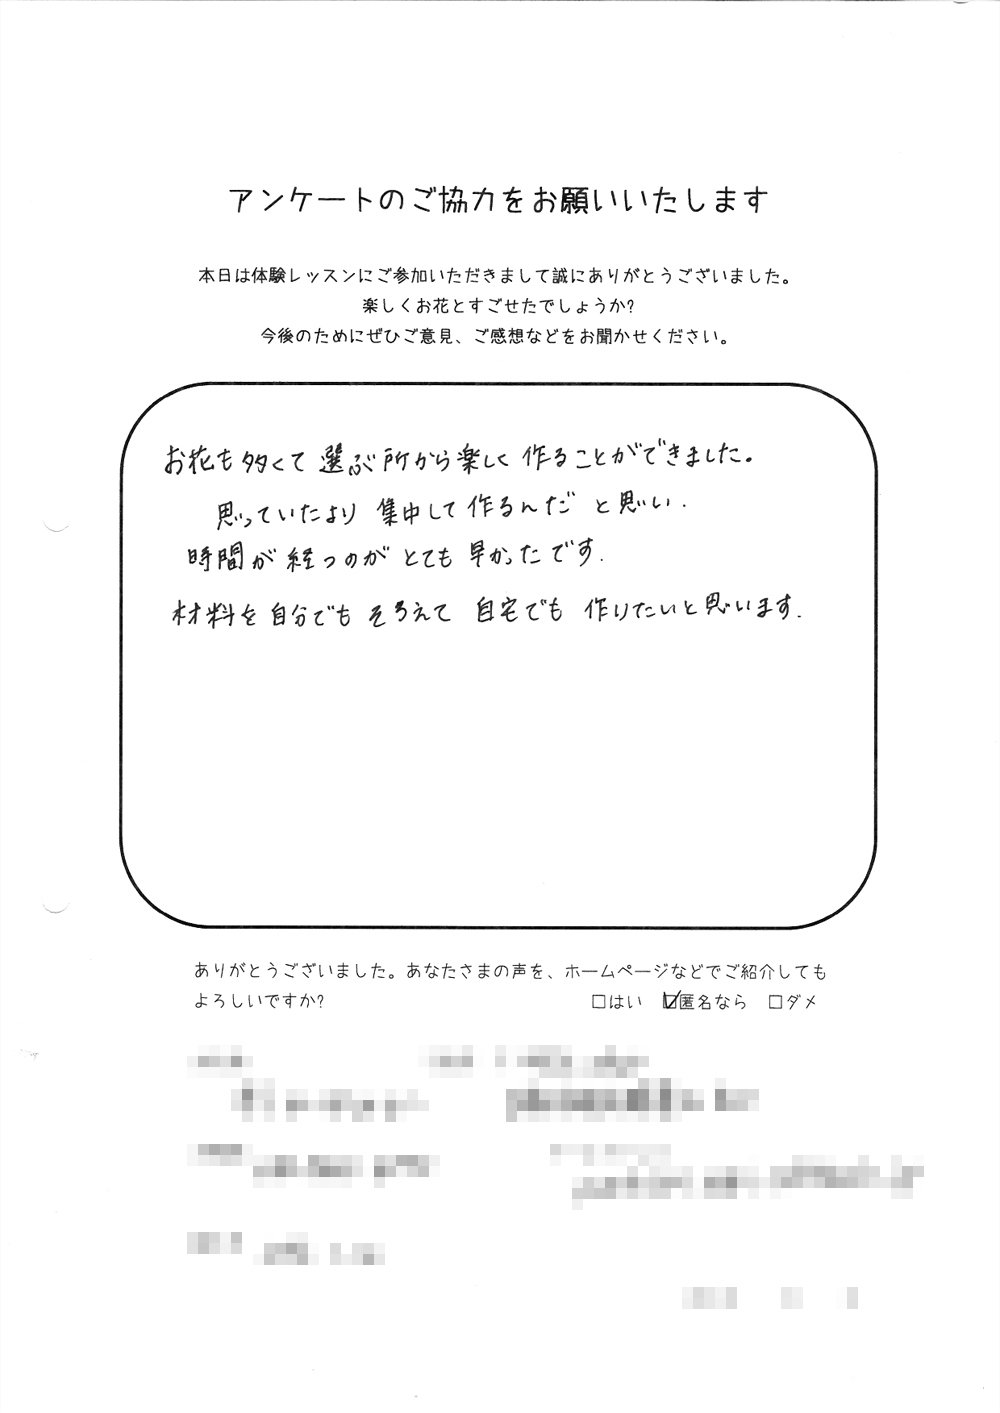 アンケートのご協力をお願いいたします
本日は体験レッスンにご参加いただきまして誠にありがとうございました。
楽しくお花とすごせたでしょうか?
今後のためにぜひご意見、ご感想などをお聞かせください。
お花も多くて 選ぶ所から楽しく 作ることができました。
思っていたより 集中して作るんだ と思い.
時間が経つのが とても 早かったです.
材料を自分でも そろえて 自宅でも 作りたいと思います.
ありがとうございました。あなたさまの声を、ホームページなどでご紹介しても
よろしいですか? □はい ☑匿名なら □ダメ